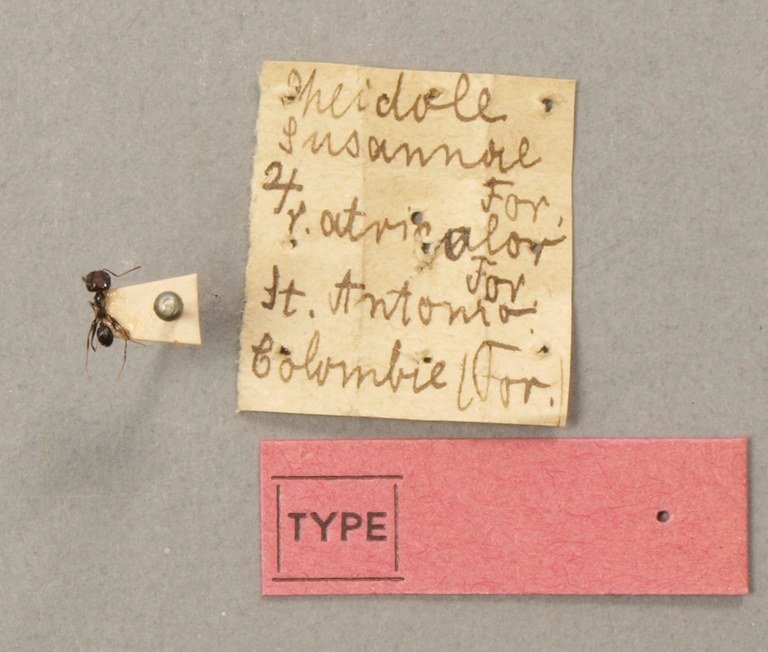 Pheidole
Susannae
♃ For.
r. atricolor
For.
St. Antonio.
Colombie (For.)
TYPE